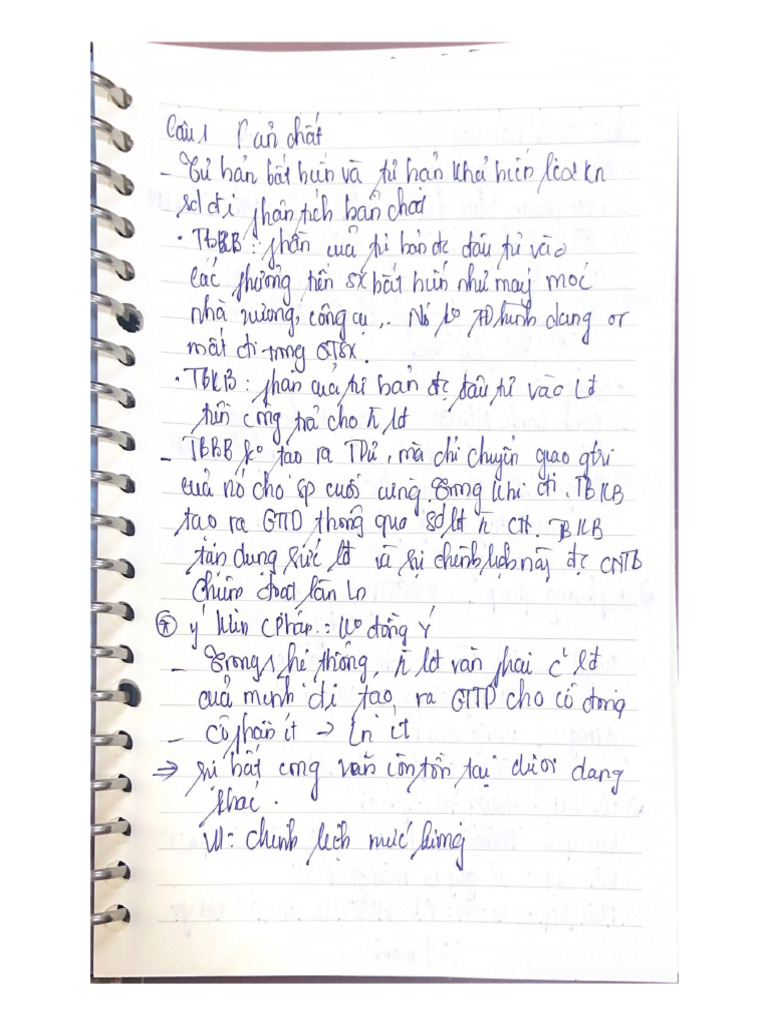 Câu 1 Bản chất
- Tư bản bất biến và tư bản khả biến là 2 kn
sd để phân tích bản chất
• TBBB: phần của tư bản đc đầu tư vào
các phương tiện sx bất biến như máy móc
nhà xưởng, công cụ,.. Nó ko TĐ hình dạng or
mất đi trong QTSX.
• TBKB: phần của tư bản đc đầu tư vào LĐ
tiền công trả cho lđ
- TBBB ko tạo ra, mà chỉ chuyển giao gtri
của nó cho sp cuối cùng. Trong khi đi. TBKB
tạo ra GTTD thông qua sd lđ. TBKB
tận dụng sức lđ và sự chênh lệch này đc CNTB
chiếm đoạt làm ln
ý kiến C Pháp: ko đồng ý
- Trong hệ thống, lđ vẫn phải lđ
của mình để tạo ra GTTD cho cổ đông
- cổ phần ít → Ln ít
⇒ sự bất công vẫn còn tồn tại dưới dạng
khác.
VD: chênh lệch mức lương